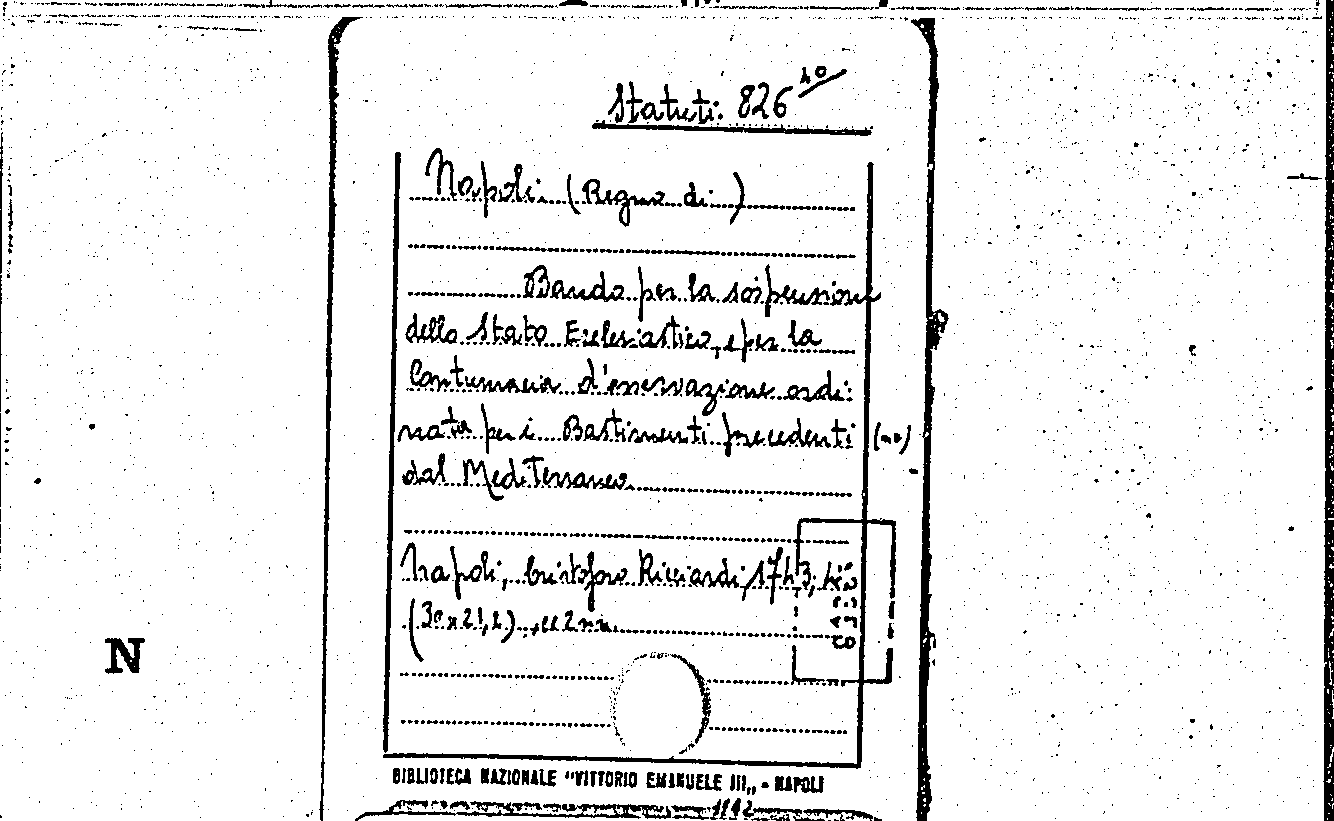 Statuti. 826 40/
Napoli (Regno di)
Bando per la sospensione
dello Stato Ecclesiastico, e per la
Contumacia d'osservazione ordi:
nata per i Bastimenti precedenti (no)
dal Mediterraneo.
Napoli, Cristoforo Ricciardi, 1743, 4°:
(30x21,2)., cc 2 nn.
N
BIBLIOTECA NAZIONALE "VITTORIO EMANUELE III„ - NAPOLI
1192